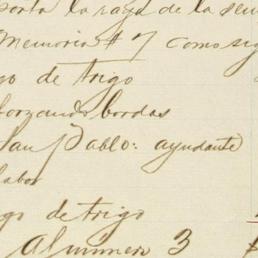 porta la raya de la sem
Memoria # 7 como sig
go de trigo
forzando bordos
San Pablo: ayudante
labor
go de trigo
al numero 3 $